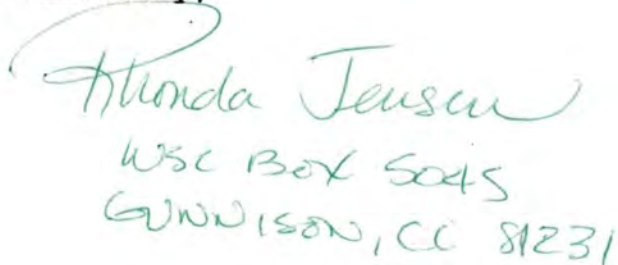 Rhonda Jensen
WSC BOX 5045
GUNNISON, CO 81231